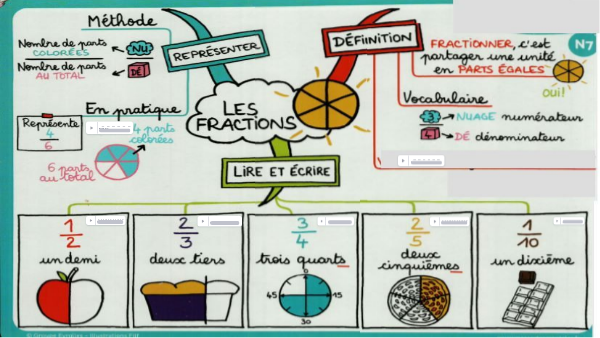 Méthode
Nombre de parts
COLORÉES
Nombre de parts
AU TOTAL
NU
DÉ
REPRÉSENTER
DÉFINITION
FRACTIONNER, c'est
partager une unité
en PARTS ÉGALES
oui!
N7
En pratique
Représente
4
6
4 parts
colorées
6 parts
au total
LES
FRACTIONS
Vocabulaire
3 NUAGE numérateur
4 DÉ dénominateur
LIRE ET ÉCRIRE
1
2
un demi
2
3
deux tiers
3
4
trois quarts
0
45 15
30
2
5
deux
cinquièmes
1
10
un dixième